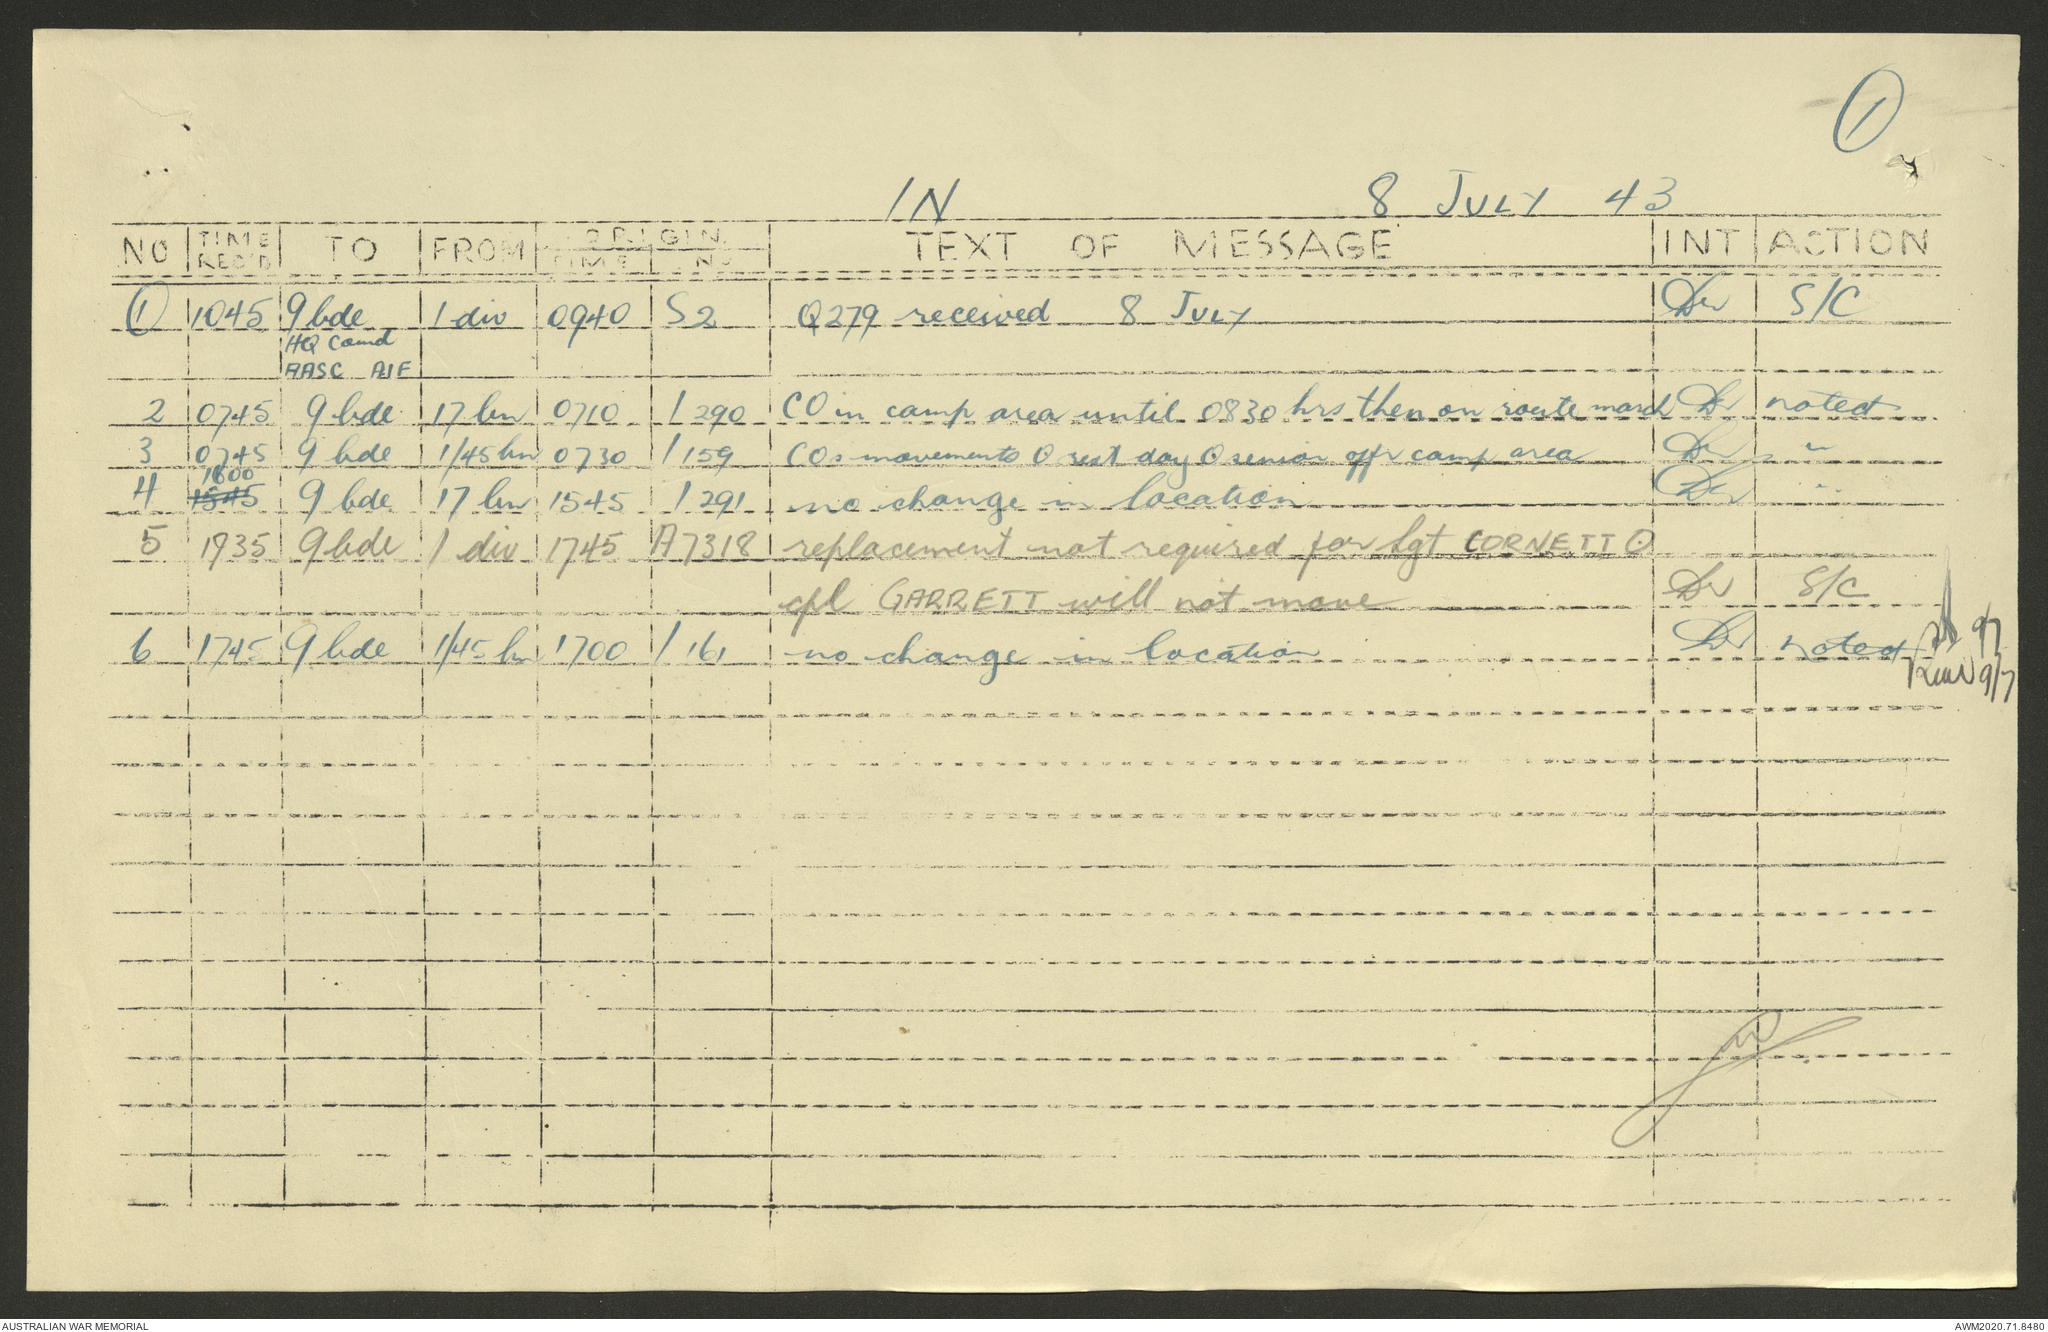 1
IN 8 JULY 43
NO TIME REC'D TO FROM ORIGIN TIME NO TEXT OF MESSAGE INT ACTION
1 1045 9 bde 1 div 0940 S2 Q279 received 8 JULY S/C
HQ Comd
AASC AIF
2 0745 9 bde 17 bn 0710 1290 CO in camp area until 0830 hrs then on route march noted
3 0745 9 bde 1/45 bn 0730 1159 COs movements ⊙ rest day ⊙ senior offr camp area "
4 1545 1600 9 bde 17 bn 1545 1291 no change in location "
5 1935 9 bde 1 div 1745 A7318 replacement not required for Sgt CORNETT ⊙
cpl GARRETT will not move S/C
6 1745 9 bde 1/45 bn 1700 1161 no change in location noted 9/7
9/7
AUSTRALIAN WAR MEMORIAL AWM2020.71.8480